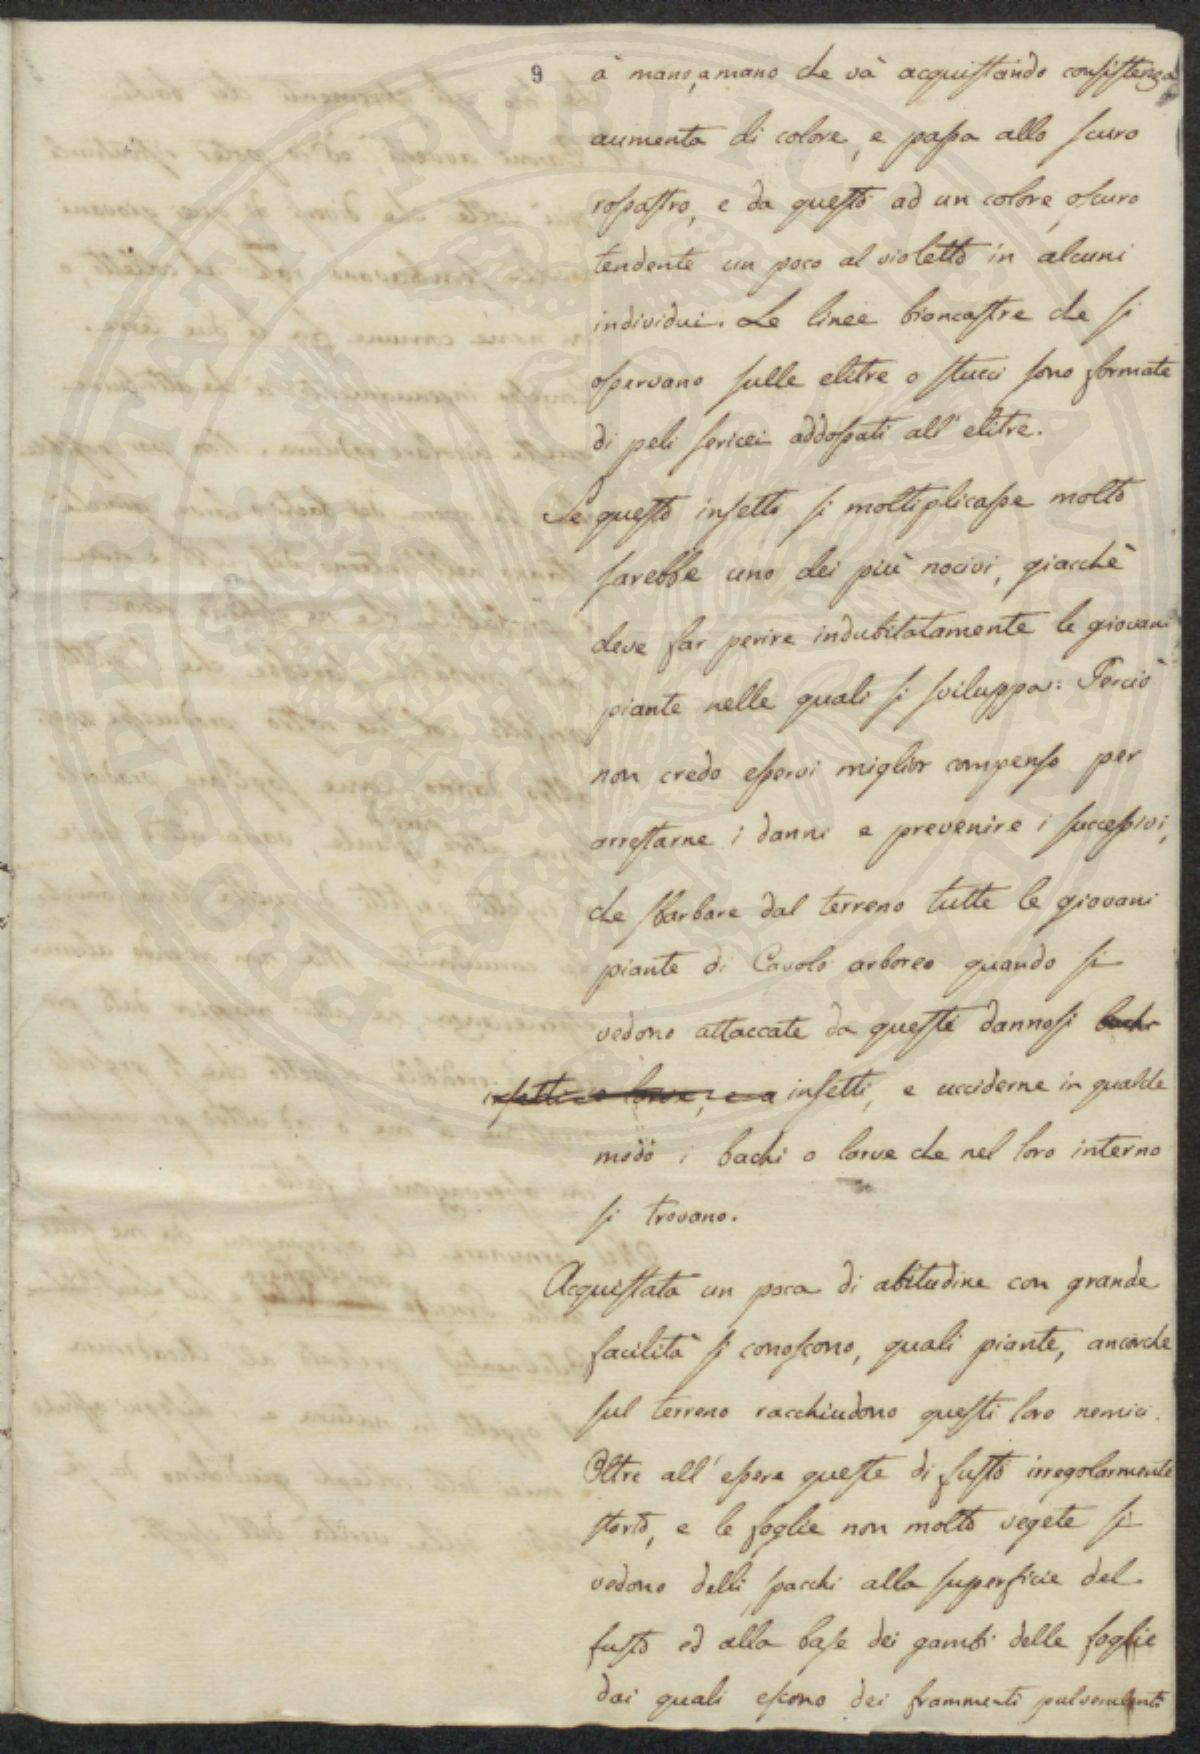 9
à mano, a mano che và acquistando consistenza
aumenta di colore, e passa allo scuro
rossastro, e da questo ad un colore oscuro
tendente un poco al violetto in alcuni
individui. Le linee biancastre che si
osservano sulle elitre o stucci sono formate
di peli sericei addossati all'elitre.
Se questo insetto si moltiplicasse molto
sarebbe uno dei più nocivi, giacchè
deve far perire indubitatamente le giovani
piante nelle quali si sviluppa: Perciò
non credo esservi miglior compenso per
arrestarne i danni e prevenire i successivi,
che sbarbare dal terreno tutte le giovani
piante di Cavolo arboreo quando si
vedono attaccate da queste dannosi bachi
insetti o larve, e a insetti, e ucciderne in qualche
modo i bachi o larve che nel loro interno
si trovano.
Acquistata un poca di abitudine con grande
facilità si conoscono, quali piante, ancorche
sul terreno racchiudono questi loro nemici.
Oltre all'essere queste di fusto irregolarmente
storto, e le foglie non molto vegete si
vedono delli spacchi alla superficie del
fusto ed alla base dei gambi delle foglie
dai quali escono dei frammenti pulverulenti
PVBLICA